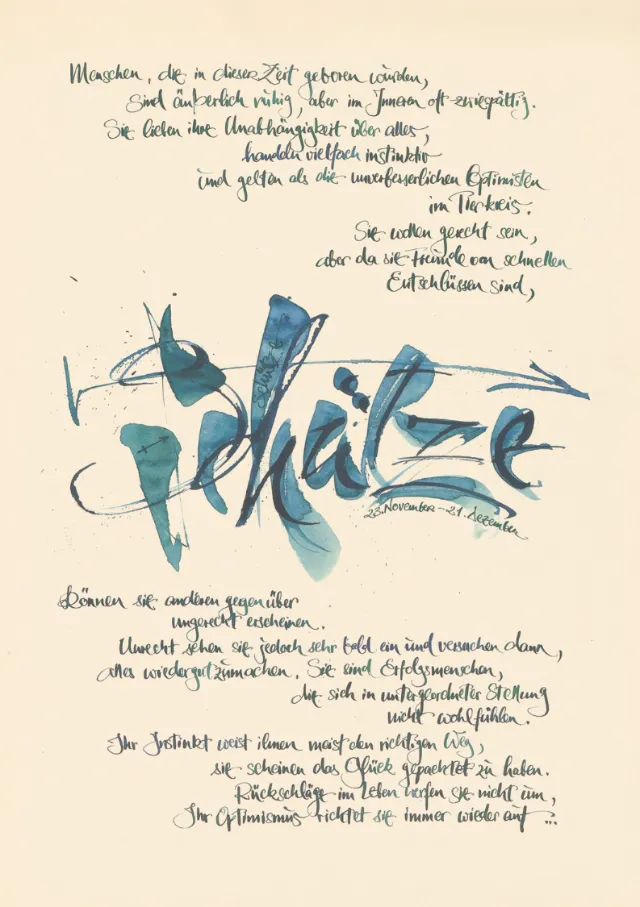 Menschen, die in dieser Zeit geboren wurden,
sind äußerlich ruhig, aber im Inneren oft zwiespältig.
Sie lieben ihre Unabhängigkeit über alles,
handeln vielfach instinktiv
und gelten als die unverbesserlichen Optimisten
im Tierkreis.
Sie wollen gerecht sein,
aber da sie Freunde von schnellen
Entschlüssen sind,
Schütze
Schütze
23. November – 21. Dezember
können sie anderen gegenüber
ungerecht erscheinen.
Unrecht sehen sie jedoch sehr bald ein und versuchen dann,
alles wiedergutzumachen. Sie sind Erfolgsmenschen,
die sich in untergeordneter Stellung
nicht wohlfühlen.
Ihr Instinkt weist ihnen meist den richtigen Weg,
sie scheinen das Glück gepachtet zu haben.
Rückschläge im Leben werfen sie nicht um,
Ihr Optimismus richtet sie immer wieder auf ...